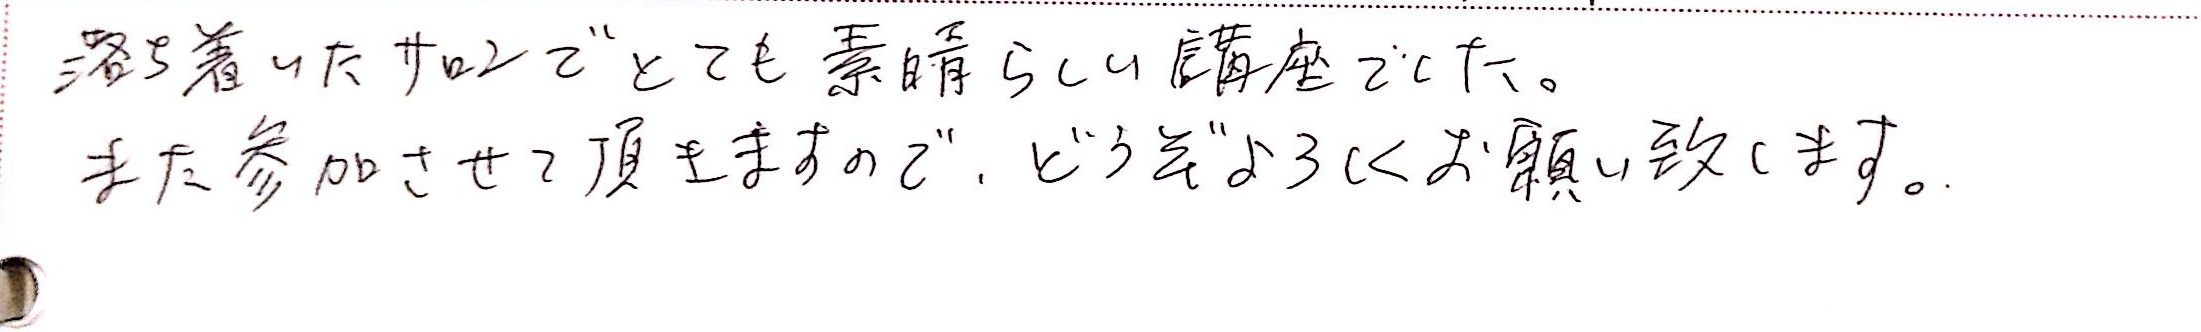 落ち着いたサロンでとても素晴らしい講座でした。
また参加させて頂きますので、どうぞよろしくお願い致します。